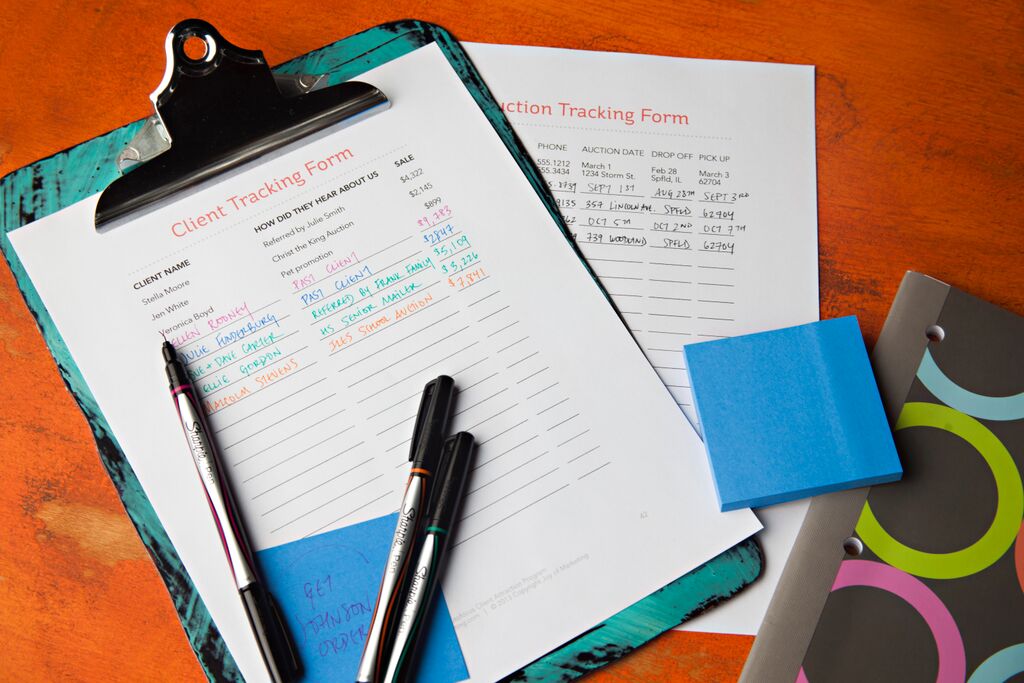 Client Tracking Form
CLIENT NAME HOW DID THEY HEAR ABOUT US SALE
Stella Moore Referred by Julie Smith $4,322
Jen White Christ the King Auction $2,145
Veronica Boyd Pet promotion $899
ELLEN ROONEY PAST CLIENT $9,783
JULIE FUNDERBURG PAST CLIENT $2847
DAVE CARTER REFERRED BY FRANK FAMILY $5,109
GORDON HS SENIOR MAILER $3,226
MALCOLM STEVENS ILES SCHOOL AUCTION $7,841
62
Client Attraction Program
| © 2013 Copyright Joy of Marketing
uction Tracking Form
PHONE AUCTION DATE DROP OFF PICK UP
555.1212 March 1 Feb 28 March 3
555.3434 1234 Storm St. Spfld, IL 62704
5-8739 SEPT 1ST AUG 28TH SEPT 3RD
9135 357 LINCOLN AVE. SPFLD 62704
362 OCT 5TH OCT 2ND OCT 7TH
739 WOODLAND SPFLD 62704
GET
JOHNSON
ORDER
Sharpie Pen
Sharpie Pen
Sharpie Pen